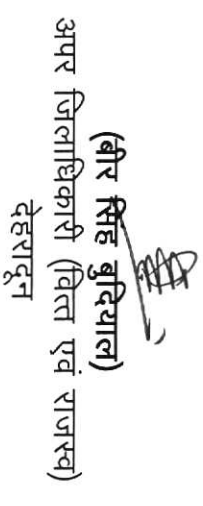 (बीर सिंह बुदियाल)
अपर जिलाधिकारी (वित्त एवं राजस्व)
देहरादून